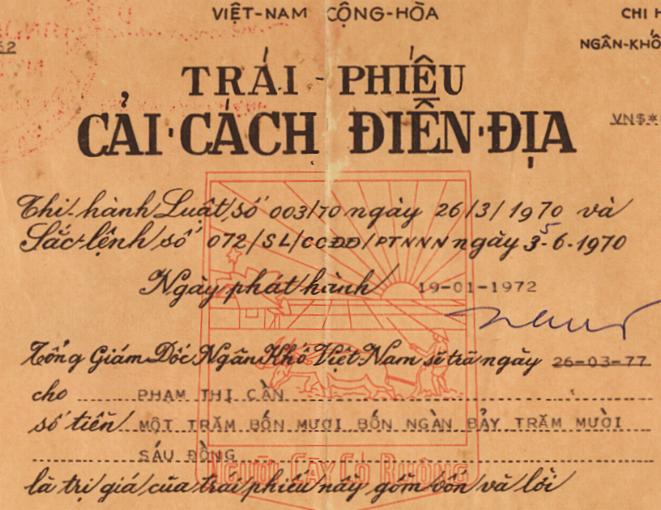 VIỆT-NAM CỘNG-HÒA
CHI
62
NGÂN-KHỐ
TRÁI - PHIẾU
CẢI·CÁCH ĐIỀN·ĐỊA
VN$*
Thi-hành Luật số 003/70 ngày 26/3/1970 và
Sắc-lệnh số 072/SL/CCĐĐ/PTNNN ngày 5-6-1970
Ngày phát hành 19-01-1972
Tổng Giám Đốc Ngân Khố Việt Nam sẽ trả ngày 26-03-77
cho PHẠM THỊ CẦN
số tiền MỘT TRĂM BỐN MƯƠI BỐN NGÀN BẢY TRĂM MƯỜI
SÁU ĐỒNG
NGƯỜI CÀY CÓ RUỘNG
là trị giá của trái phiếu này gồm vốn và lời